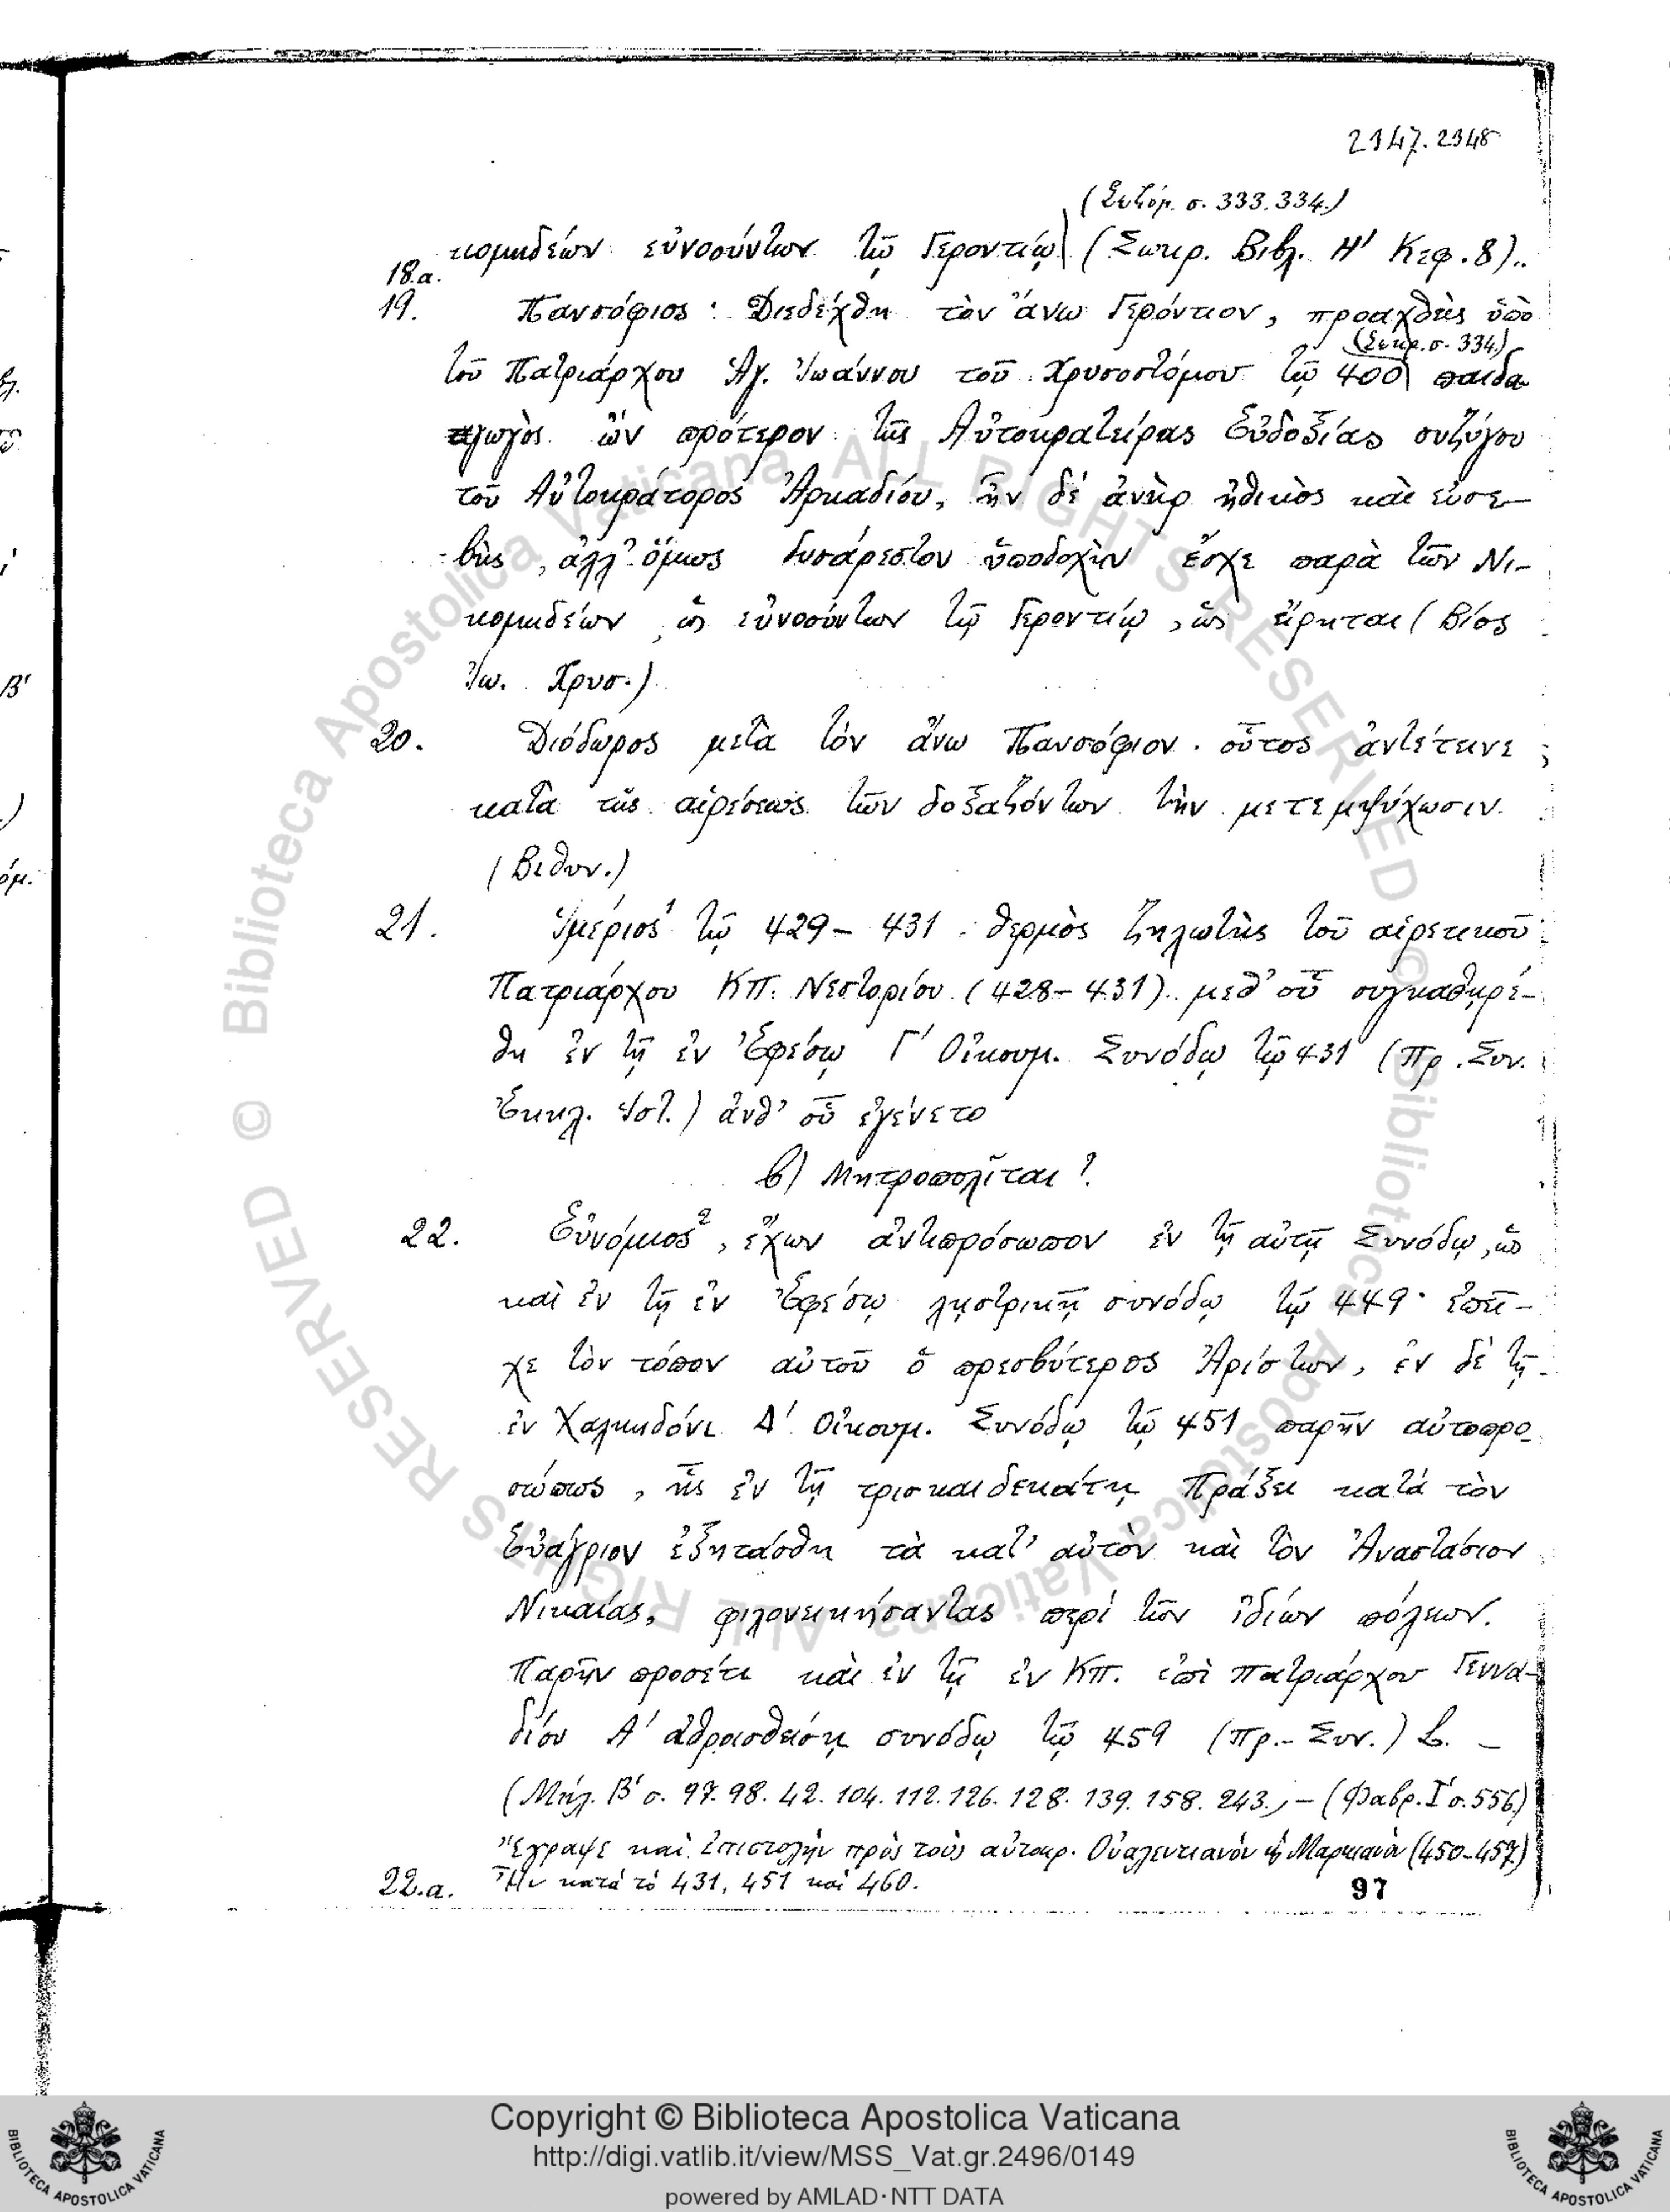 2347. 2348
(Σωζόμ. σ. 333. 334.)
κομηδέων εὐνοούντων τῷ Γεροντίῳ (Σωκρ. Βιβλ. Η' Κεφ. 8)..
18.α.
19. Πανσόφιος: Διεδέχθη τὸν ἄνω Γερόντιον, προαχθεὶς ὑπὸ
(Σωκρ. σ. 334.)
τοῦ Πατριάρχου Ἁγ. Ἰωάννου τοῦ Χρυσοστόμου τῷ 400 παιδα
γωγὸς ὢν πρότερον τῆς Αὐτοκρατείρας Εὐδοξίας συζύγου
τοῦ Αὐτοκράτορος Ἀρκαδίου, ἦν δὲ ἀνὴρ ἠθικὸς καὶ εὐσε-
βὴς, ἀλλ' ὅμως δυσάρεστον ὑποδοχὴν ἔσχε παρὰ τῶν Νι-
κομηδέων, ὡς εὐνοούντων τῷ Γεροντίῳ, ὡς εἴρηται (Βίος
Ἰω. Χρυσ.)
20. Διόδωρος μετὰ τὸν ἄνω Πανσόφιον. οὗτος ἀντέτεινε
κατὰ τῆς αἱρέσεως τῶν δοξαζόντων τὴν μετεμψύχωσιν.
(Βιθυν.)
21. Ἱμέριος' τῷ 429-431. θερμὸς ζηλωτὴς τοῦ αἱρετικοῦ
Πατριάρχου ΚΠ. Νεστορίου (428-431).. μεθ' οὗ συγκαθῃρέ-
θη ἐν τῇ ἐν Ἐφέσῳ Γ' Οἰκουμ. Συνόδῳ τῷ 431 (Πρ. Συν.
Ἐκκλ. Ἱστ.) ἀνθ' οὗ ἐγένετο
β) Μητροπολῖται!
22. Εὐνόμιος², ἔχων ἀντιπρόσωπον ἐν τῇ αὐτῇ Συνόδῳ, ὡς
καὶ ἐν τῇ ἐν Ἐφέσῳ λῃστρικῇ συνόδῳ τῷ 449. ἐπεῖ-
χε τὸν τόπον αὐτοῦ ὁ πρεσβύτερος Ἀρίστων, ἐν δὲ τῇ
ἐν Χαλκηδόνι Δ' Οἰκουμ. Συνόδῳ τῷ 451 παρῆν αὐτοπρο-
σώπως, ἧς ἐν τῇ τρισκαιδεκάτῃ Πράξει κατὰ τὸν
Εὐάγριον ἐξητάσθη τὰ κατ' αὐτὸν καὶ τὸν Ἀναστάσιον
Νικαίας, φιλονεικήσαντας περὶ τῶν ἰδίων πόλεων.
Παρῆν προσέτι καὶ ἐν τῇ ἐν ΚΠ. ἐπὶ πατριάρχου Γεννα-
δίου Α' ἀθροισθείσῃ συνόδῳ τῷ 459 (Πρ.- Συν.)
(Μήλ. Β' σ. 97. 98. 42. 104. 112. 126. 128. 139. 158. 243.,- (Φαβρ. Ι' σ. 556.)
Ἔγραψε καὶ ἐπιστολὴν πρὸς τοὺς αὐτοκρ. Οὐαλεντιανόν ϗ Μαρκιανὸν (450-457)
22.α. Ἦν κατὰ τὸ 431, 451 καὶ 460.
97
© Biblioteca Apostolica Vaticana ALL RIGHTS RESERVED © Biblioteca Apostolica Vaticana ALL RIGHTS RESERVED
Copyright © Biblioteca Apostolica Vaticana
http://digi.vatlib.it/view/MSS_Vat.gr.2496/0149
powered by AMLAD·NTT DATA
BIBLIOTECA APOSTOLICA VATICANA
BIBLIOTECA APOSTOLICA VATICANA